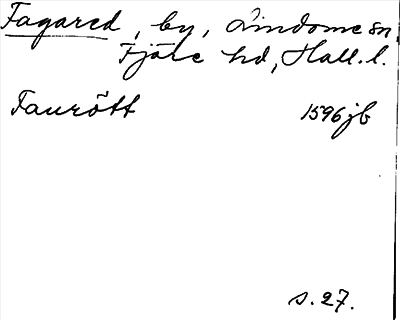 Fagared, by, Lindome sn,
Fjäre hd, Hall. l.
Faurött 1596 jb
s. 27.